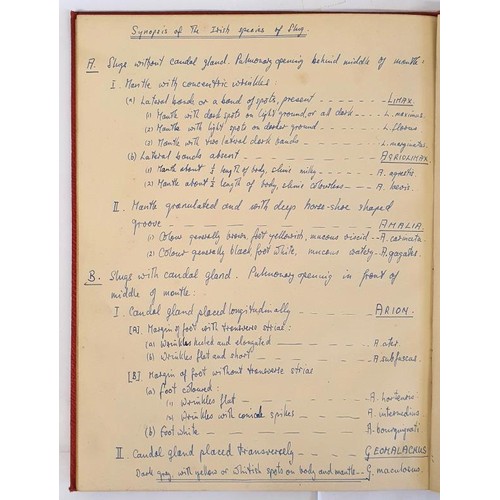 Synopsis of the Irish species of Slug.
A. Slugs without caudal gland. Pulmonary opening behind middle of mantle:
I. Mantle with concentric wrinkles:
(a) Lateral bands or a band of spots, present — LIMAX.
(1) Mantle with dark spots on light ground, or all dark — L. maximus.
(2) Mantle with light spots on darker ground — L. flavus
(2) Mantle with two lateral dark bands — L. marginatus.
(b) Lateral bands absent — AGRIOLIMAX
(1) Mantle about ⅓ length of body, slime milky — A. agrestis
(2) Mantle about ½ length of body, slime colourless — A. laevis.
II. Mantle granulated and with deep horse-shoe shaped
groove — AMALIA.
(1) Colour generally brown, foot yellowish, mucous viscid — A. carinata.
(2) Colour generally black, foot white, mucous watery — A. gagates.
B. Slugs with caudal gland. Pulmonary opening in front of
middle of mantle:
I. Caudal gland placed longitudinally — ARION.
[A]. Margin of foot with transverse striae:
(a) Wrinkles keeled and elongated — A. ater.
(b) Wrinkles flat and short — A. subfuscus.
[B]. Margin of foot without transverse striae
(a) Foot coloured:
(i) Wrinkles flat — A. hortensis
(ii) Wrinkles with conical spikes — A. intermedius
(b) Foot white — A. bourguignati
II. Caudal gland placed transversely — GEOMALACUS
Dark gray with yellow or whitish spots on body and mantle — G. maculosus.